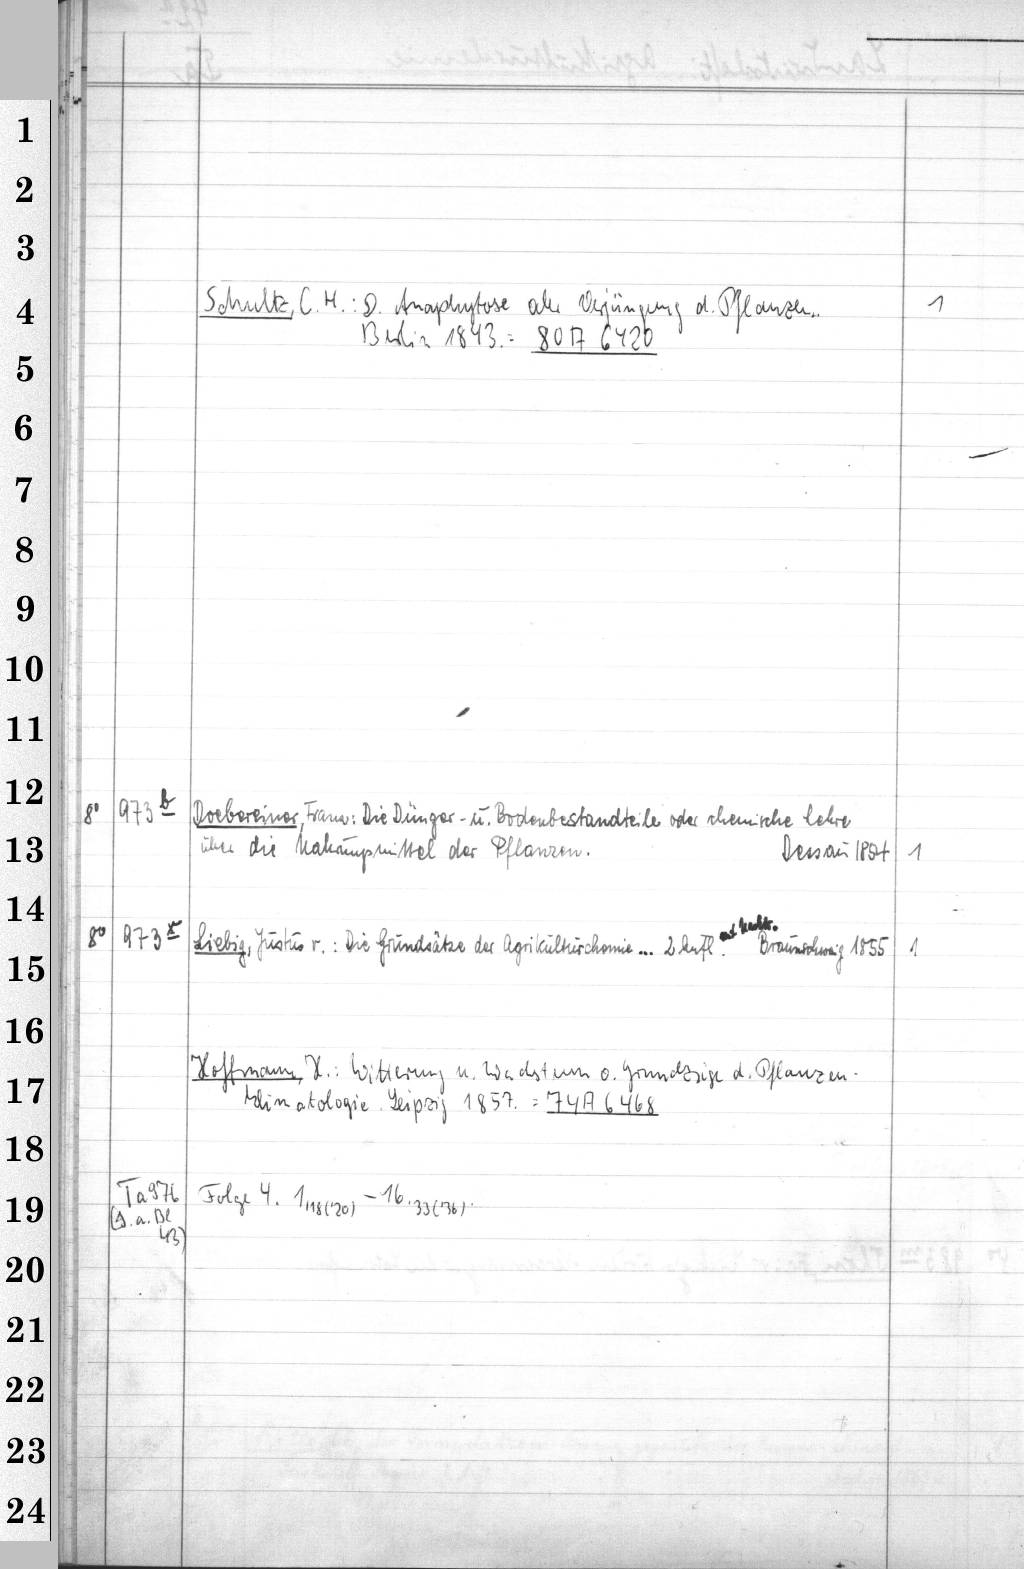 1
2
3
4
Schultz, C. H.: D. Anaphytose oder Verjüngung d. Pflanzen. 1
Berlin 1843. = 80 A 6420
5
6
7
8
9
10
11
12
8° 973 b Doebereiner, Franz: Die Dünger- u. Bodenbestandteile oder chemische Lehre
13
über die Nahrungsmittel der Pflanzen. Dessau 1854 1
14
8° 973 x Liebig, Justus v.: Die Grundsätze der Agrikulturchemie ... 2. Aufl. mit Nachtr. Braunschweig 1855 1
15
16
Hoffmann, H.: Witterung u. Wachstum o. Grundzüge d. Pflanzen-
17
klimatologie. Leipzig 1857. = 74 A 6468
18
Ta 976 Folge 4. 1,118('20) – 16,33('36).
19
(s. a. Bl
43)
20
21
22
23
24